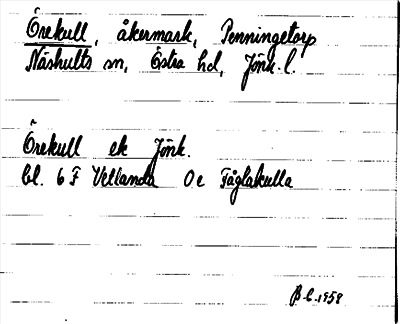 Örekull, åkermark, Penningetorp
Näshults sn, Östra hd, Jönk. l.
Örekull ek Jönk.
bl. 6 F Vetlanda O e Fåglakulla
B.C. 1958